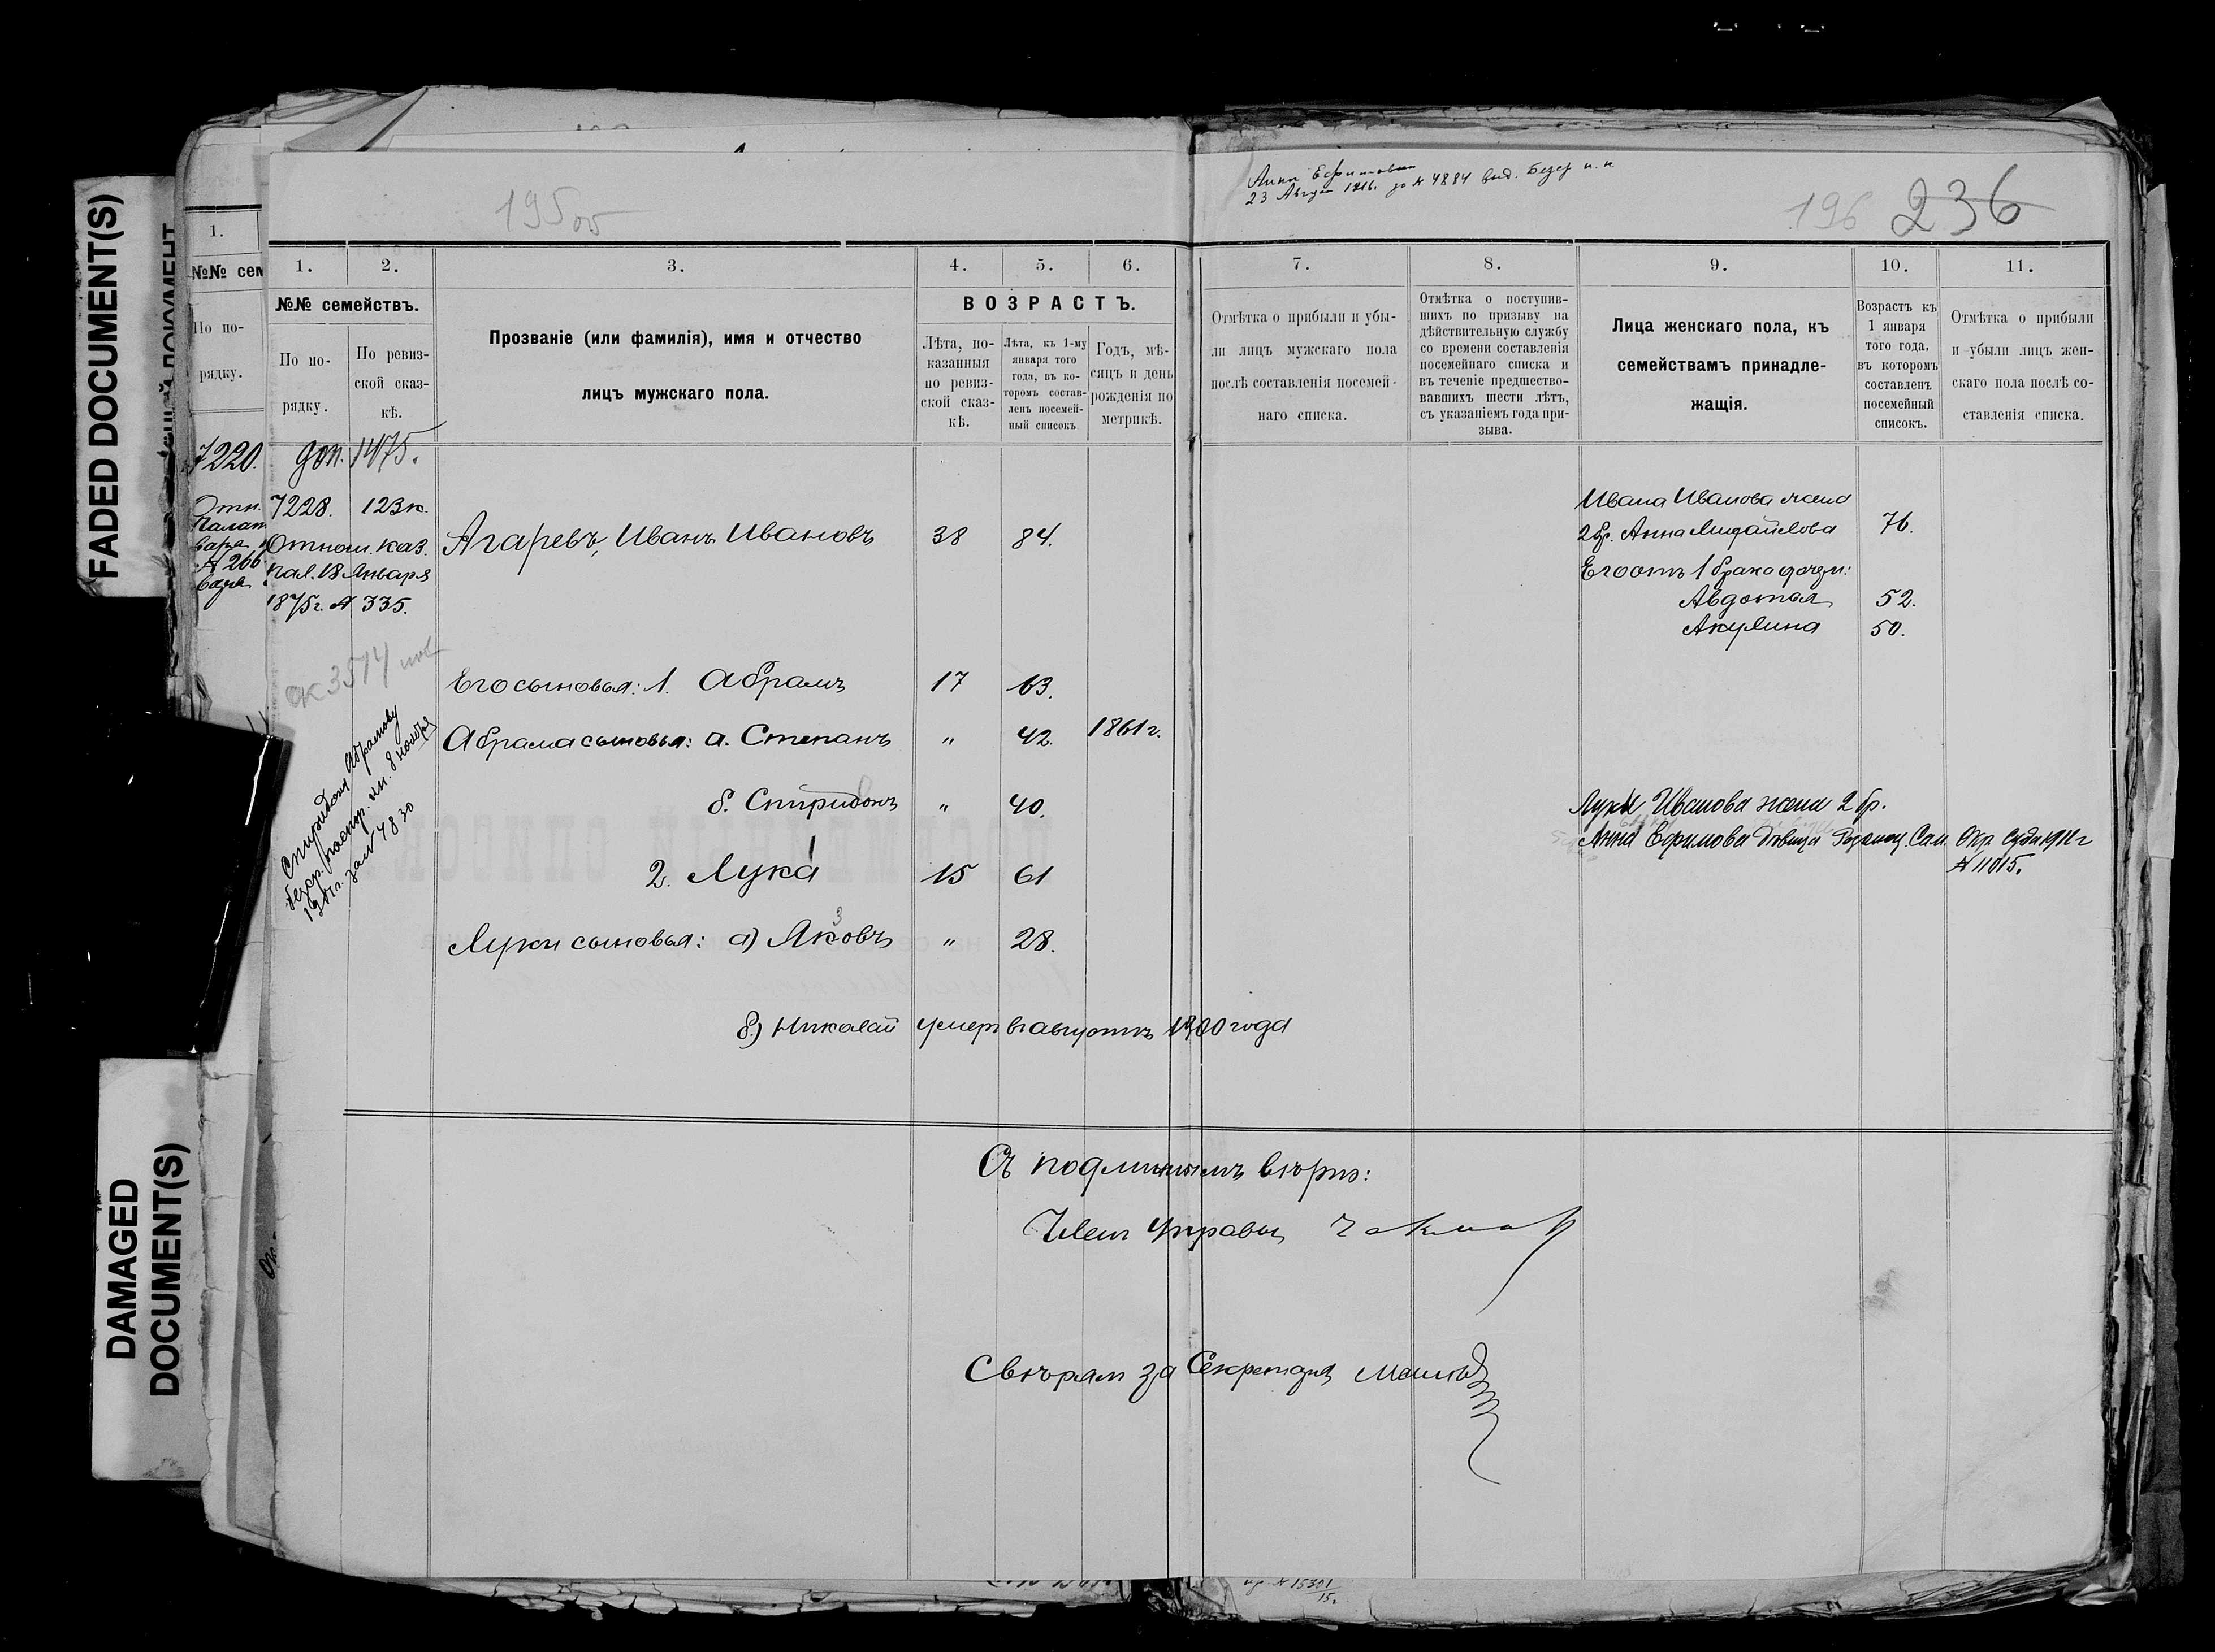 FADED DOCUMENT(S)
DAMAGED
DOCUMENT(S)
195 об
Анна Ефимовна
23 Август 1916. за № 4884 выд.
196 236
1.
№№ сем
По по-
рядку.
7220.
1. 2. 3. 4. 5. 6.
№№ семействъ.
По по-
рядку.
По ревиз-
ской сказ-
кѣ.
Прозваніе (или фамилія), имя и отчество
лицъ мужскаго пола.
ВОЗРАСТЪ.
Лѣта, по-
казанныя
по ревиз-
ской сказ-
кѣ.
Лѣта, къ 1-му
января того
года, въ ко-
торомъ состав-
ленъ посемей-
ный списокъ
Годъ, мѣ-
сяцъ и день
рожденія по
метрикѣ.
7. 8. 9. 10. 11.
Отмѣтка о прибыли и убы-
ли лицъ мужскаго пола
послѣ составленія посемей-
наго списка.
Отмѣтка о поступив-
шихъ по призыву на
дѣйствительную службу
со времени составленія
посемейнаго списка и
въ теченіе предшество-
вавшихъ шести лѣтъ,
съ указаніемъ года при-
зыва.
Лица женскаго пола, къ
семействамъ принадле-
жащія.
Возрастъ къ
1 января
того года,
въ которомъ
составленъ
посемейный
списокъ.
Отмѣтка о прибыли
и убыли лицъ жен-
скаго пола послѣ со-
ставленія списка.
доп. 1475.
7228. 123 к.
Отнош. каз.
пал. 18 Января
1875 г. № 335.
Агаревъ, Иванъ Ивановъ 38 84.
Ивана Иванова жена
2 бр. Анна Михайлова 76.
Его отъ 1 брака дочери:
Авдотья 52.
Акулина 50.
ск 3514
Его сыновья: 1. Абрамъ 17 63.
Абрама сыновья: а. Степанъ " 42. 1861 г.
б. Спиридонъ " 40.
2. Лука 15 61
Луки сыновья: а) Яковъ " 28.
3
б) Николай умеръ въ августѣ 1900 года
Спиридону Абрамову
безср. паспор. кн. 8 ноября
за № 4830
Луки Иванова жена 2 бр.
Анна Ефимова дѣвица Сам. Окр. Суда
№ 11015.
Съ подлиннымъ вѣрно:
Членъ Управы
Свѣрялъ за Секретаря
№ 15301
15.